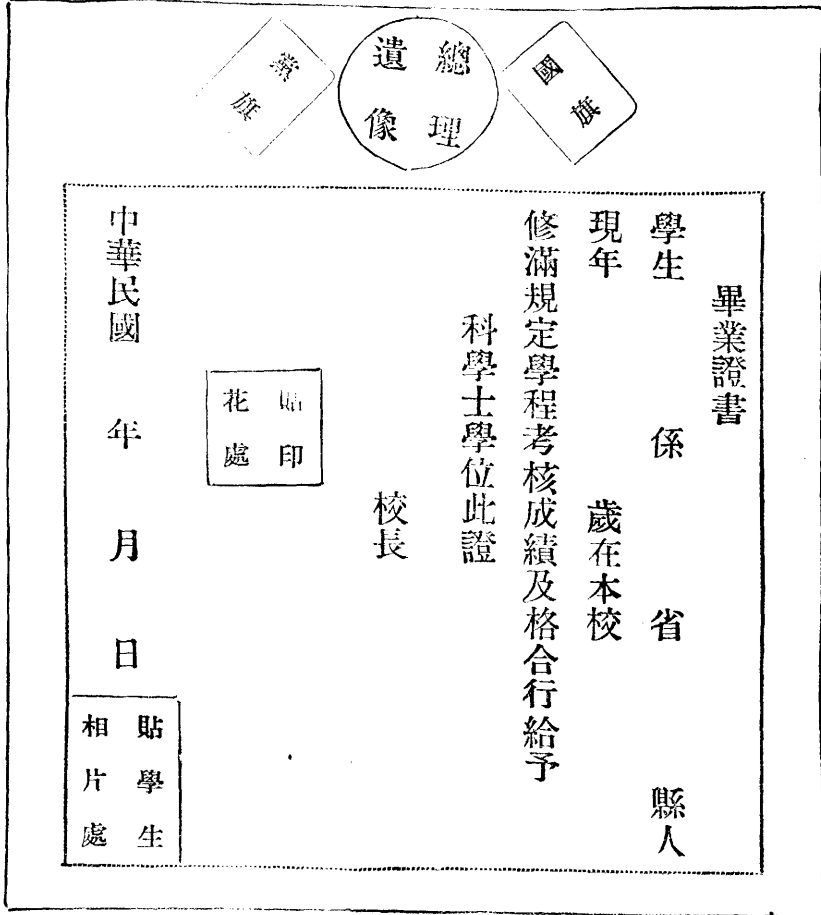 國旗
總理
遺像
黨旗
畢業證書
學生 係 省 縣人
現年 歲在本校
修滿規定學程考核成績及格合行給予
科學士學位此證
校長
貼印
花處
中華民國 年 月 日
貼學生
相片處